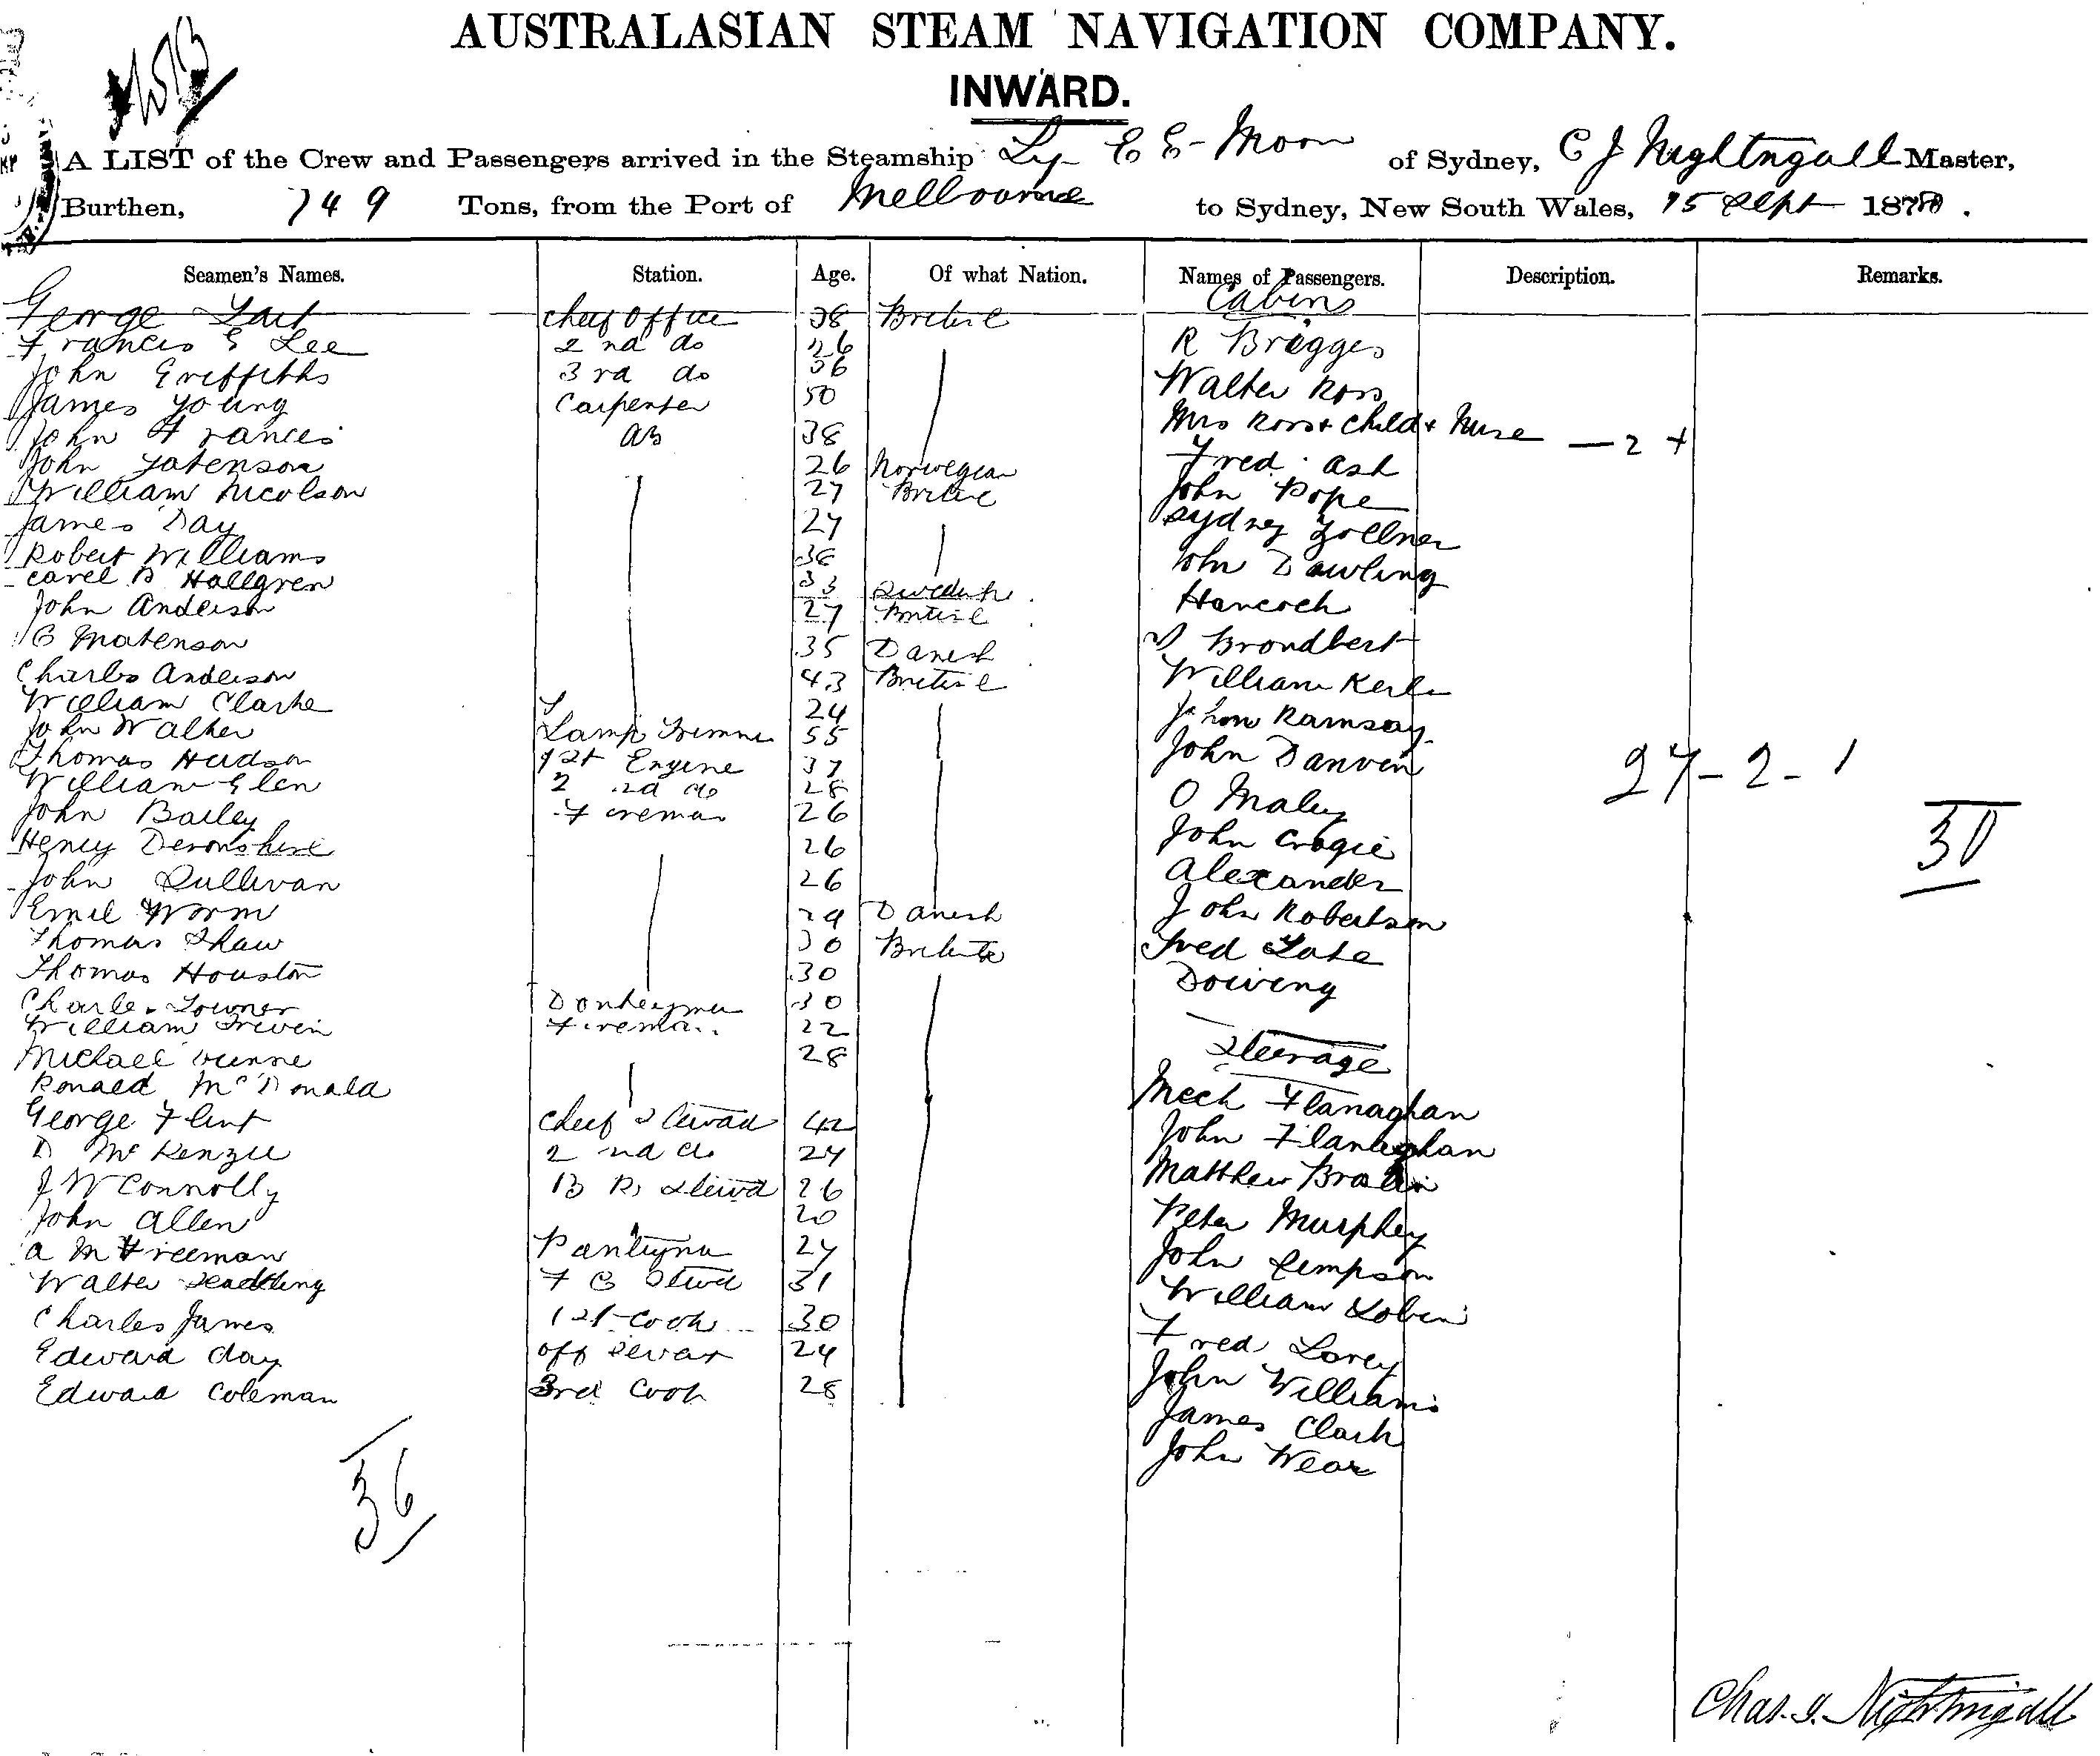 AUSTRALASIAN STEAM NAVIGATION COMPANY.
INWARD.
A LIST of the Crew and Passengers arrived in the Steamship Ly-E E-Moon of Sydney, C J Nightngall Master,
Burthen, 749 Tons, from the Port of Melbourne to Sydney, New South Wales, 15 Sept 1878.
Seamen's Names. Station. Age. Of what Nation. Names of Passengers. Description. Remarks.
Cabins
George Tait Chef Office 38 British
Frances E Lee 2nd do 26 R Brigges
John Griffiths 3rd do 36 Walter Ross
James Young Carpenter 50 Mrs Ross & Child & Nurse — 2 +
John Frances AB 38 Fred Ash
John Tatenson 26 Norwegian John Pope
William Nicolson 27 British Sydney Zollner
James Day 27 John Dowling
Robert Williams 38 Hancock
Carel B Hallgren 33 Swedish
John Anderson 27 British Brondbert
C Matenson 35 Danish
Charles Anderson 43 British William
William Clarke 24 John Ramsay
John Walker Lamp Trimme 55 John Danven
Thomas Hudson 1st Engine 37 O Maley
William Glen 2nd do 28 John Cragie
John Bailey Fireman 26 Alexander
Henry Devonshire 26 John Robertson
John Sullivan 26 Fred Tate
Emil Worm 29 Danish Dowing
Thomas Shaw 30 British
Thomas Houston 30
Charles Towner Donkeyman 30
William Irwin Fireman 22
Steerage
Michael 28
Ronald McDonald Mich Flanaghan
George Flint Chef Steward 42 John Flanaghan
D McKenzie 2nd do 24 Matthew
J W Connolly B R Stewd 26 Peter Murphey
John Allen 20 John Simpson
A M Freeman Pantryma 27 William Tobin
Walter F C Stewd 31 Fred Lorey
Charles James 1st Cook 30 John Williams
Edward Day Off 24 James Clark
Edward Coleman 3rd Cook 28 John Wear
27-2-1
30
36
Chas. J. Nightingall